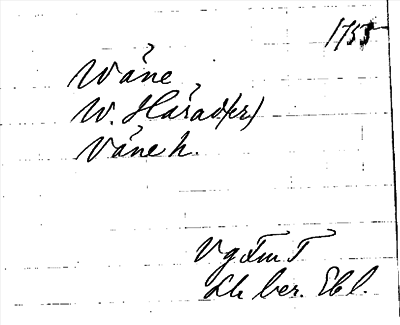 1755
Wåne
W. Härad(er)
Våne h.
Vg Fm T
Lh ber. Ebl.